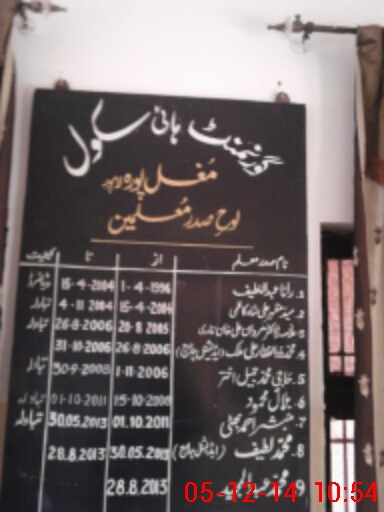 گورنمنٹ ہائی سکول
مغل پورہ لاہور
لوح صدر معلمین
نام صدر معلم از تا کیفیت
1. رانا عبداللطیف 1-4-1996 15-4-2004
2. 15-4-2004 4-11-2004 تبادلہ
3. 20-8-2005 26-8-2006 تبادلہ
4. 26-8-2006 31-10-2006
5. حاجی محمد جمیل اختر 1-11-2006 30-9-2008 تبادلہ
6. بلال محمود 15-10-2009 01-10-2011 تبادلہ
7. مبشر احمد بھٹی 01.10.2011 30.05.2013 تبادلہ
8. محمد لطیف 30.05.2013 28.8.2013
9. 28.8.2013
05-12-14 10:54